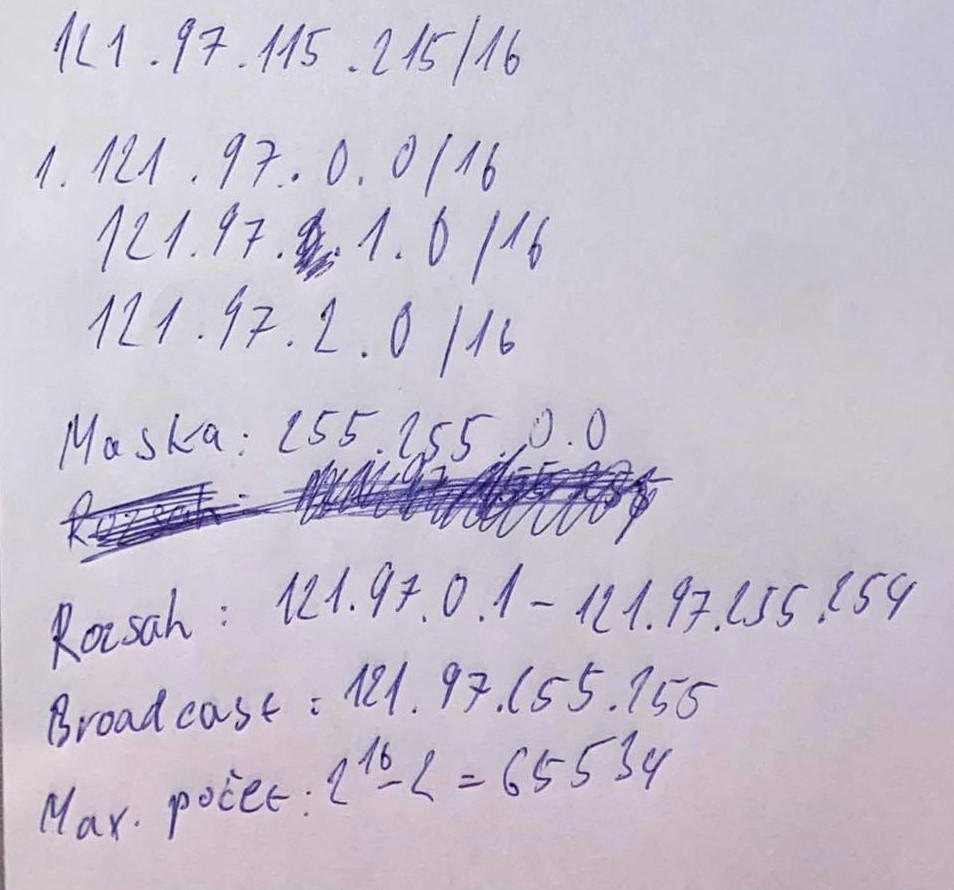 121.97.115.215/16
1. 121.97.0.0/16
121.97.1.0/16
121.97.2.0/16
Maska: 255.255.0.0
Rozsah: 121.97.0.1 - 121.97.255.254
Broadcast: 121.97.255.255
Max. počet: 2¹⁶-2 = 65534